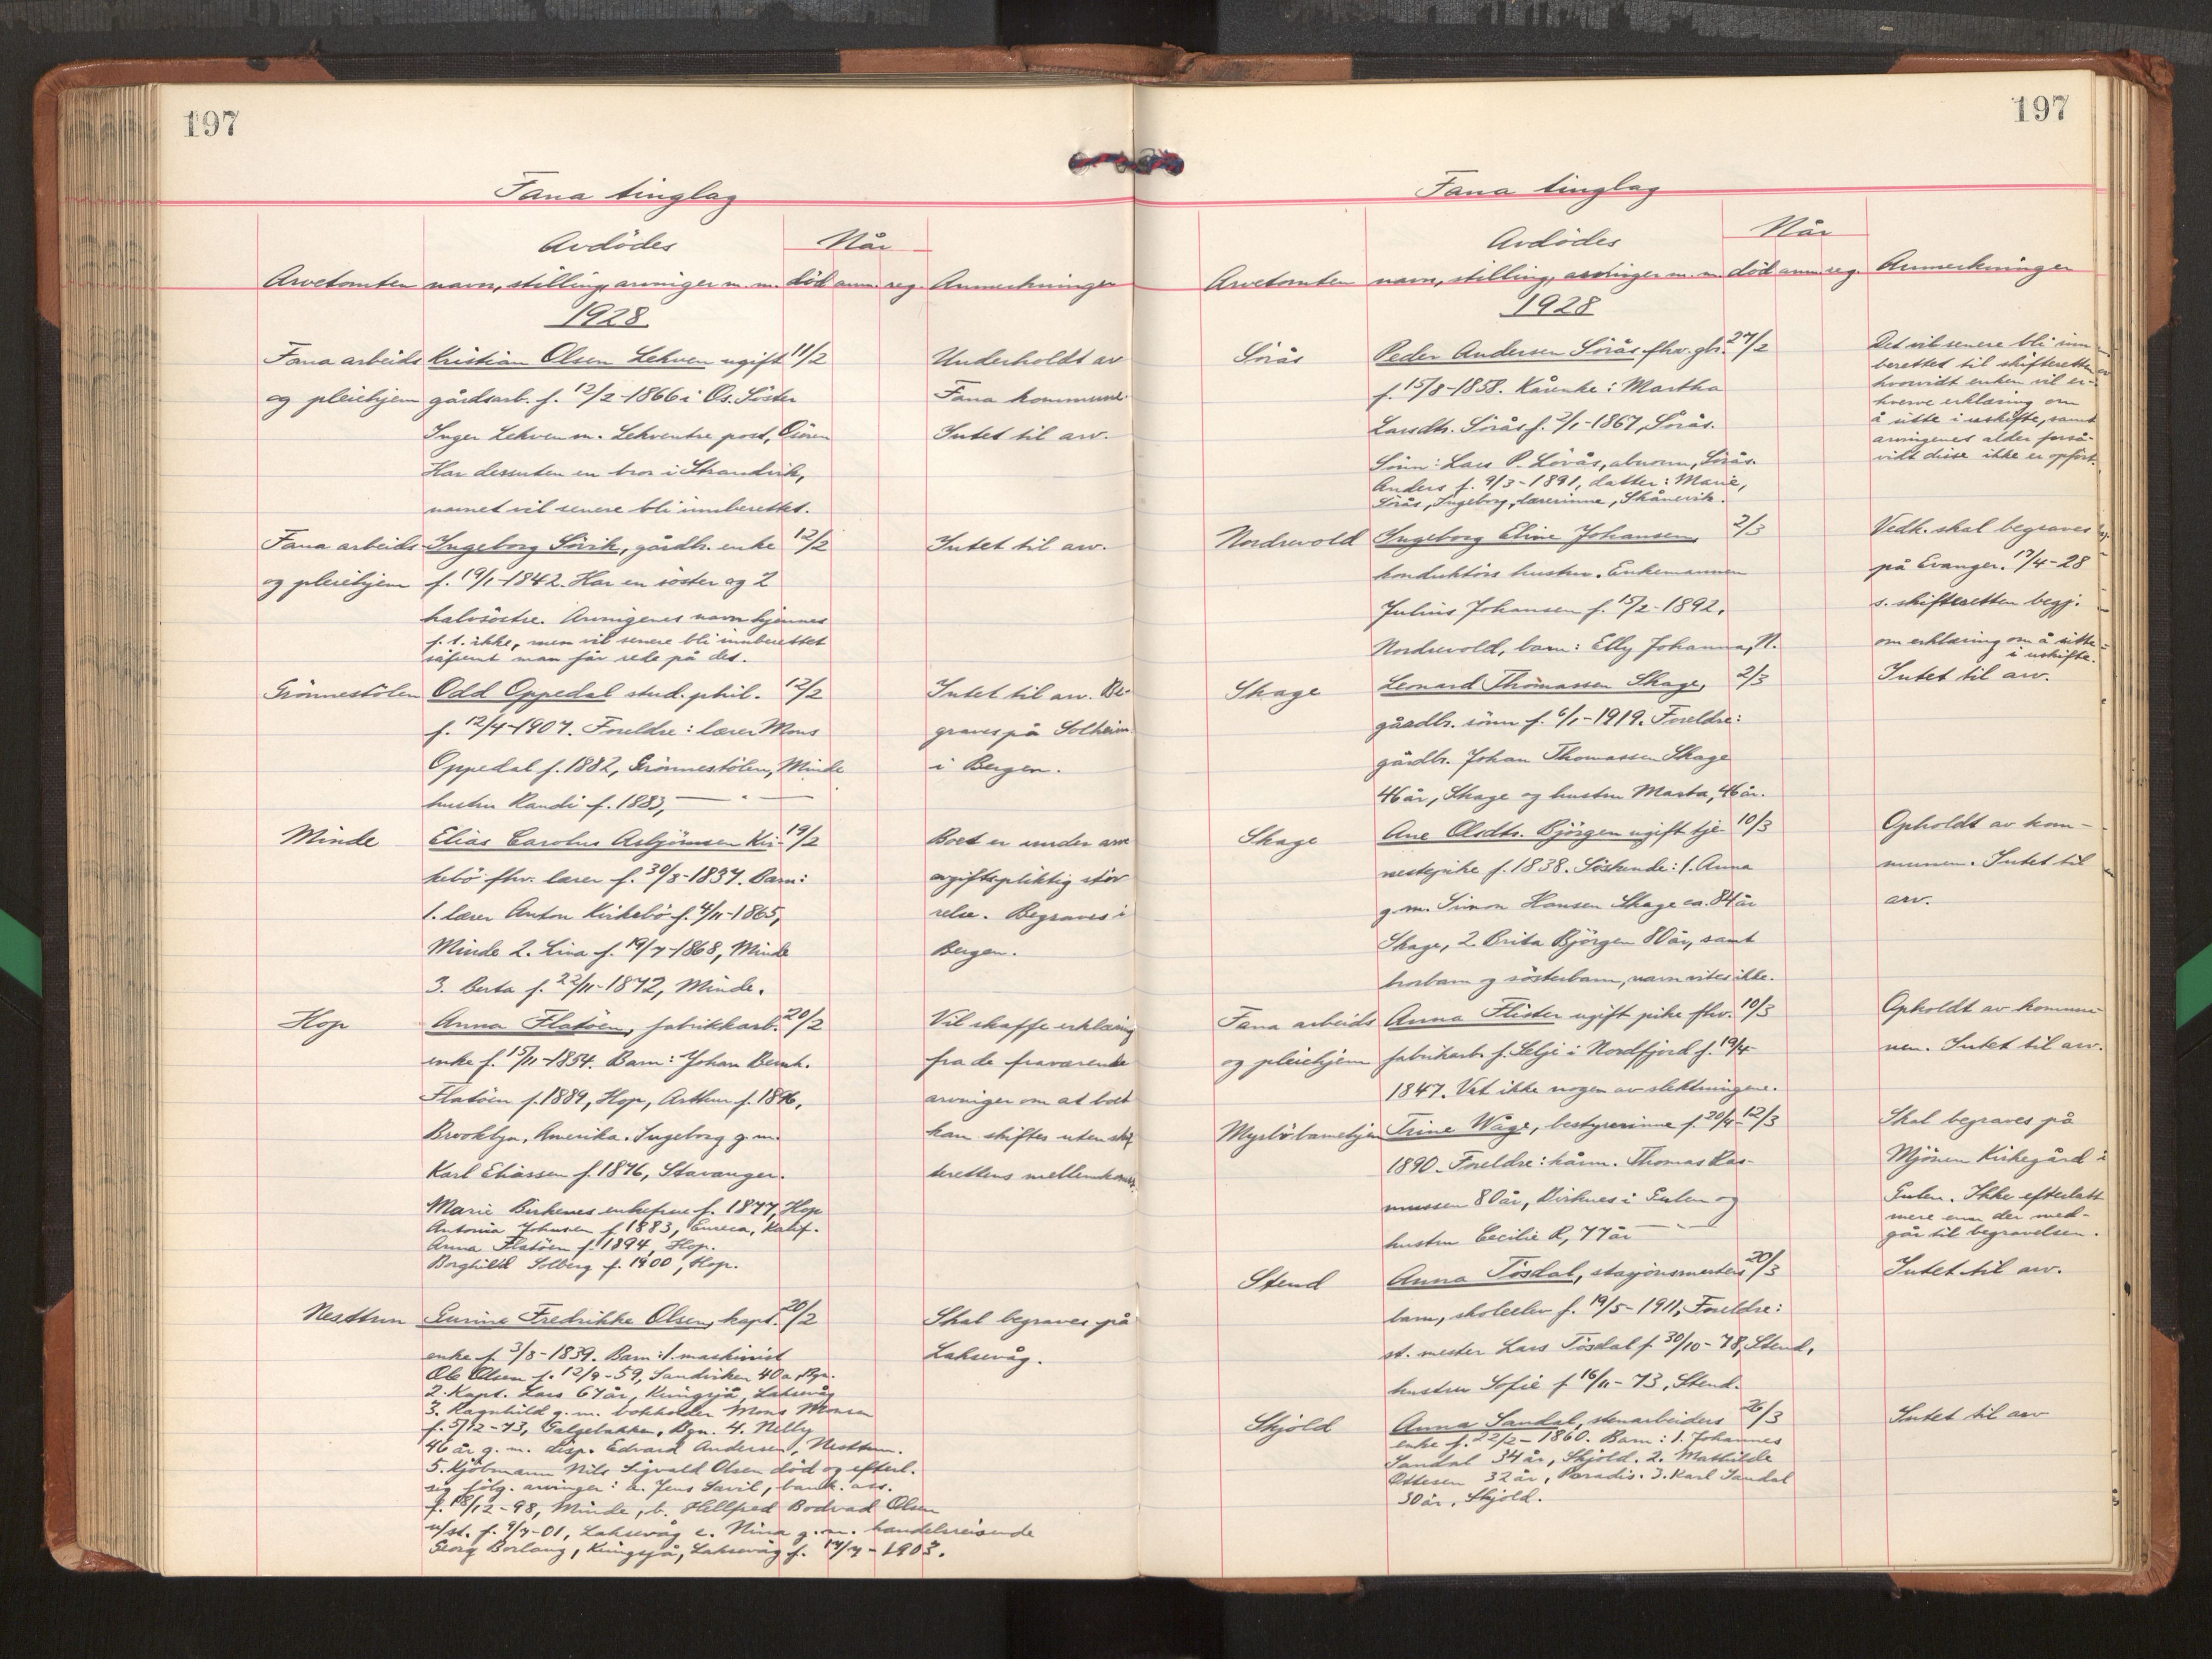 197
Fana tinglag
Avdödes
Når
Arvetomten navn, stilling, arvinger m. m. död anm. reg. Anmerkninger
1928
Fana arbeids Kristian Olsen Lekven ugift 11/2 Underholdt av
og pleiehjem gårdsarb. f. 12/2-1866 i Os. Söster Fana kommune.
Inger Lekven m. Lekventre post, Osören Intet til arv.
Har dessuten en bror i Strandvik,
navnet vil senere bli innberettet.
Fana arbeids- Ingeborg Sörvik, gårdb. enke 12/2 Intet til arv.
og pleiehjem f. 19/1-1842. Har en söster og 2
halvsöstre. Arvingenes navn kjennes
f. t. ikke, men vil senere bli innberettet
såfremt man får rede på det.
Grönnestölen Odd Oppedal stud. phil. 12/2 Intet til arv. Be-
f. 12/4-1907. Foreldre: lærer Mons graves på Solheim
Oppedal f. 1882, Grönnestölen, Minde i Bergen.
hustru Randi f. 1883, — " —
Minde Elias Carolus Asbjörnsen Kir- 19/2 Boet er under arve
kebö fhv. lærer f. 30/8-1837. Barn: avgiftspliktig stör
1. lærer Anton Kirkebö f. 4/11-1865, relse. Begraves i
Minde 2. Lina f. 19/7-1868, Minde Bergen.
3. Berta f. 22/11-1872, Minde.
Hop Anna Flatöen, fabrikkarb. 20/2 Vil skaffe erklæring
enke f. 15/11-1854. Barn: Johan Bernh. fra de fraværende
Flatöen f. 1889, Hop, Arthur f. 1896, arvinger om at boet
Brooklyn, Amerika. Ingeborg g. m. kan skiftes uten skif
Karl Eliassen f. 1876, Stavanger. terettens mellemkomst.
Marie Birkenes enkefrue f. 1877, Hop
Antonia Johnsen f. 1883, Eureca, Kalif.
Anna Flatöen f. 1894, Hop.
Borghild Solberg f. 1900, Hop.
Nesttun Gurine Fredrikke Olsen, kapt. 20/2 Skal begraves på
enke f. 3/8-1839. Barn: 1. maskinist Laksevåg.
Ole Olsen f. 12/9-59, Sandviken 40a, Bgn.
2. Kapt. Lars 67 år, Kringsjå, Laksevåg
3. Ragnhild g. m. bokholder Mons Monsen
f. 5/12-73, Galgebakken, Bgn. 4. Nelly
46 år g. m. disp. Edvard Andersen, Nesttun.
5. Kjöbmann Nils Sigvald Olsen död og efterl.
sig fölg. arvinger: a. Jens Savil, bank. ass.
f. 18/12-98, Minde, b. Hellfred Bodvad Olsen
u/st. f. 9/7-01, Laksevåg c. Nina g. m. handelsreisende
Georg Borlaug, Kringsjå, Laksevåg f. 17/7-1903.
197
Fana tinglag
Avdödes
Når
Arvetomten navn, stilling, arvinger m. m. död anm. reg. Anmerkninger
1928
Sörås Peder Andersen Sörås fhv. gbr. 27/2 Det vil senere bli inn
f. 15/8-1858. Kårenke: Martha berettet til skifteretten
Larsdtr. Sörås f. 2/1-1867, Sörås. hvorvidt enken vil er-
Sönn: Lars P. Sörås, abnorm, Sörås. hverve erklæring om
Anders f. 9/3-1891, datter: Marie, å sitte i uskifte, samt
Sörås, Ingeborg, lærerinne, Skånevik. arvingenes alder forså-
vidt disse ikke er opfört.
Nordrevold Ingeborg Eline Johansen 2/3 Vedk. skal begraves
konduktörs hustru. Enkemannen på Evanger. 17/4-28
Julius Johansen f. 15/2-1892, s. skifteretten begj.
Nordrevold, barn: Elly Johanna, N. om erklæring om å sitte
i uskifte.
Skage Leonard Thomassen Skage, 2/3 Intet til arv.
gårdbr. sönn f. 6/1-1919. Foreldre:
gårdbr. Johan Thomassen Skage
46 år, Skage og hustru Marta, 46 år.
Skage Ane Olsdtr. Björgen ugift tje- 10/3 Opholdt av kom-
nestepike f. 1838. Söskende: 1. Anna munen. Intet til
g. m. Simon Hansen Skage ca. 84 år arv.
Skage, 2. Brita Björgen 80 år, samt
brorbarn og sösterbarn, navn vites ikke.
Fana arbeids Anna Flister ugift pike fhv. 10/3 Opholdt av kommu-
og pleiehjem fabrikarb. f. Selje i Nordfjord f. 19/4- nen. Intet til arv.
1847. Vet ikke nogen av slektningene.
Myrlöbarnehjem Trine Wåge, bestyrerinne f. 20/4- 12/3 Skal begraves på
1890. Foreldre: kårm. Thomas Ras- Mjömen Kirkegård i
mussen 80 år, Dirknes i Gulen og Gulen. Ikke efterlatt
hustru Cecilie R, 77 år — " — mere enn der med-
går til begravelsen.
Stend Anna Tösdal, stasjonsmesters 20/3 Intet til arv.
barn, skoleelev f. 19/5-1911, Foreldre:
st. mester Lars Tösdal f. 30/10-78, Stend,
hustru Sofie f. 16/11-73, Stend.
Skjold Anna Sandal, stenarbeiders 26/3 Intet til arv
enke f. 22/2-1860. Barn: 1. Johannes
Sandal 34 år, Skjold. 2. Mathilde
Ottesen 32 år, Paradis. 3. Karl Sandal
30 år, Skjold.